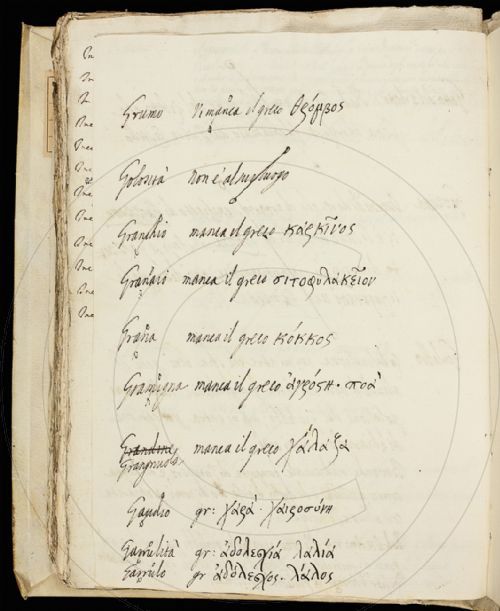 Grumo Vi manca il greco θρόμβος
Golosità non è al suo luogo
Granchio manca il greco κάρκῖνος
Granaio manca il greco σιτοφυλάκεῖον
Grana manca il greco κόκκος
Gramigna manca il greco ἄγρόση · ποὰ
Grandine manca il greco χάλαζα
Gragnuola
Gaudio gr: χαρὰ · χαιροσύνη
Garrulità gr: ἀδολεσχιά λαλιά
Garrulo gr ἀδόλεσχος · λάλος